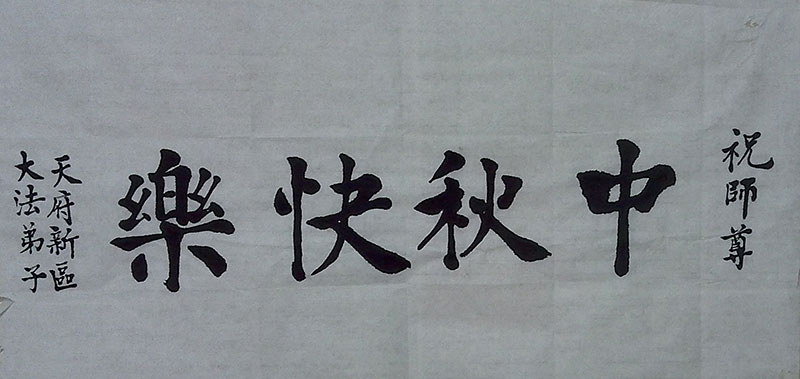 祝師尊
中秋快樂
天府新區
大法弟子